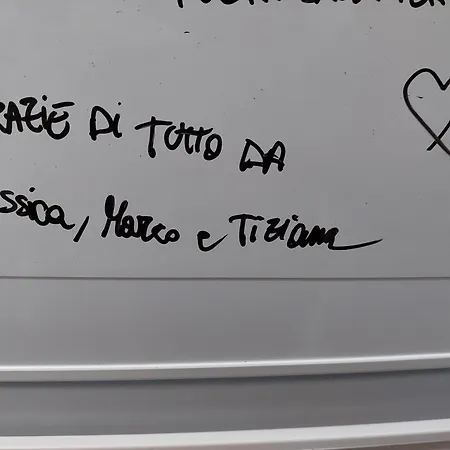 RAZIE DI TUTTO DA
ssica, Marco e Tiziana